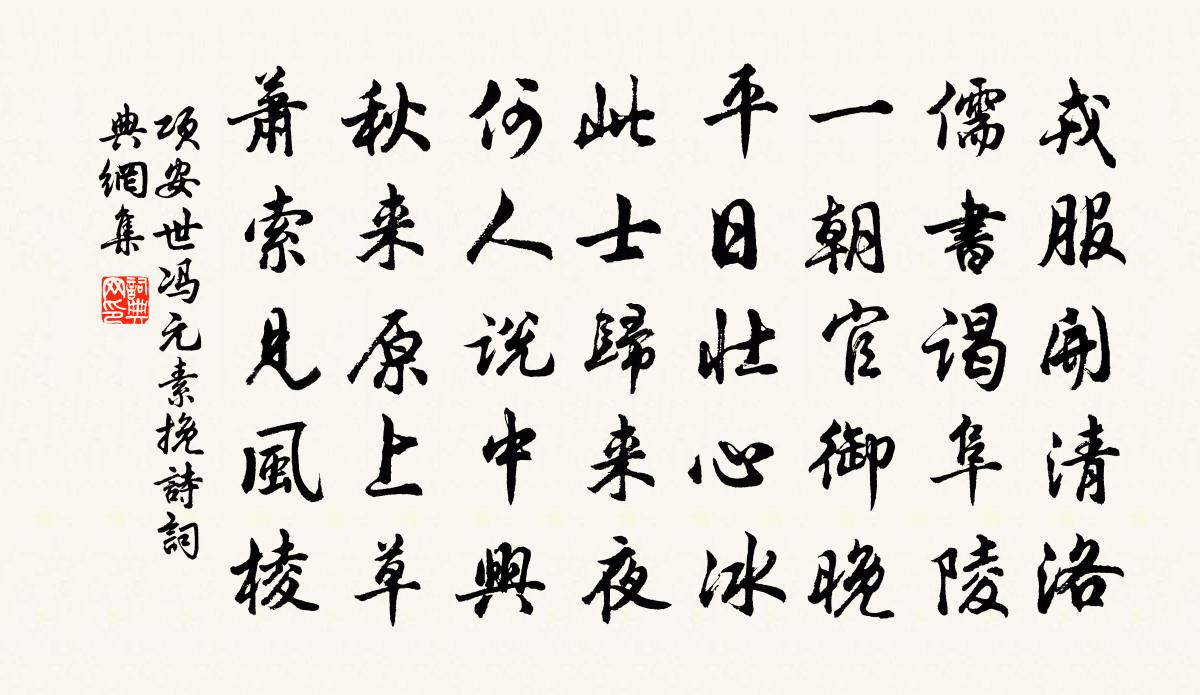 戎服開清洛
儒書谒阜陵
一朝官御晚
平日壮心冰
此士歸来夜
何人説中興
秋来原上草
蕭索見風棱
项安世冯元素挽詩詞
典網集
詞典
网印